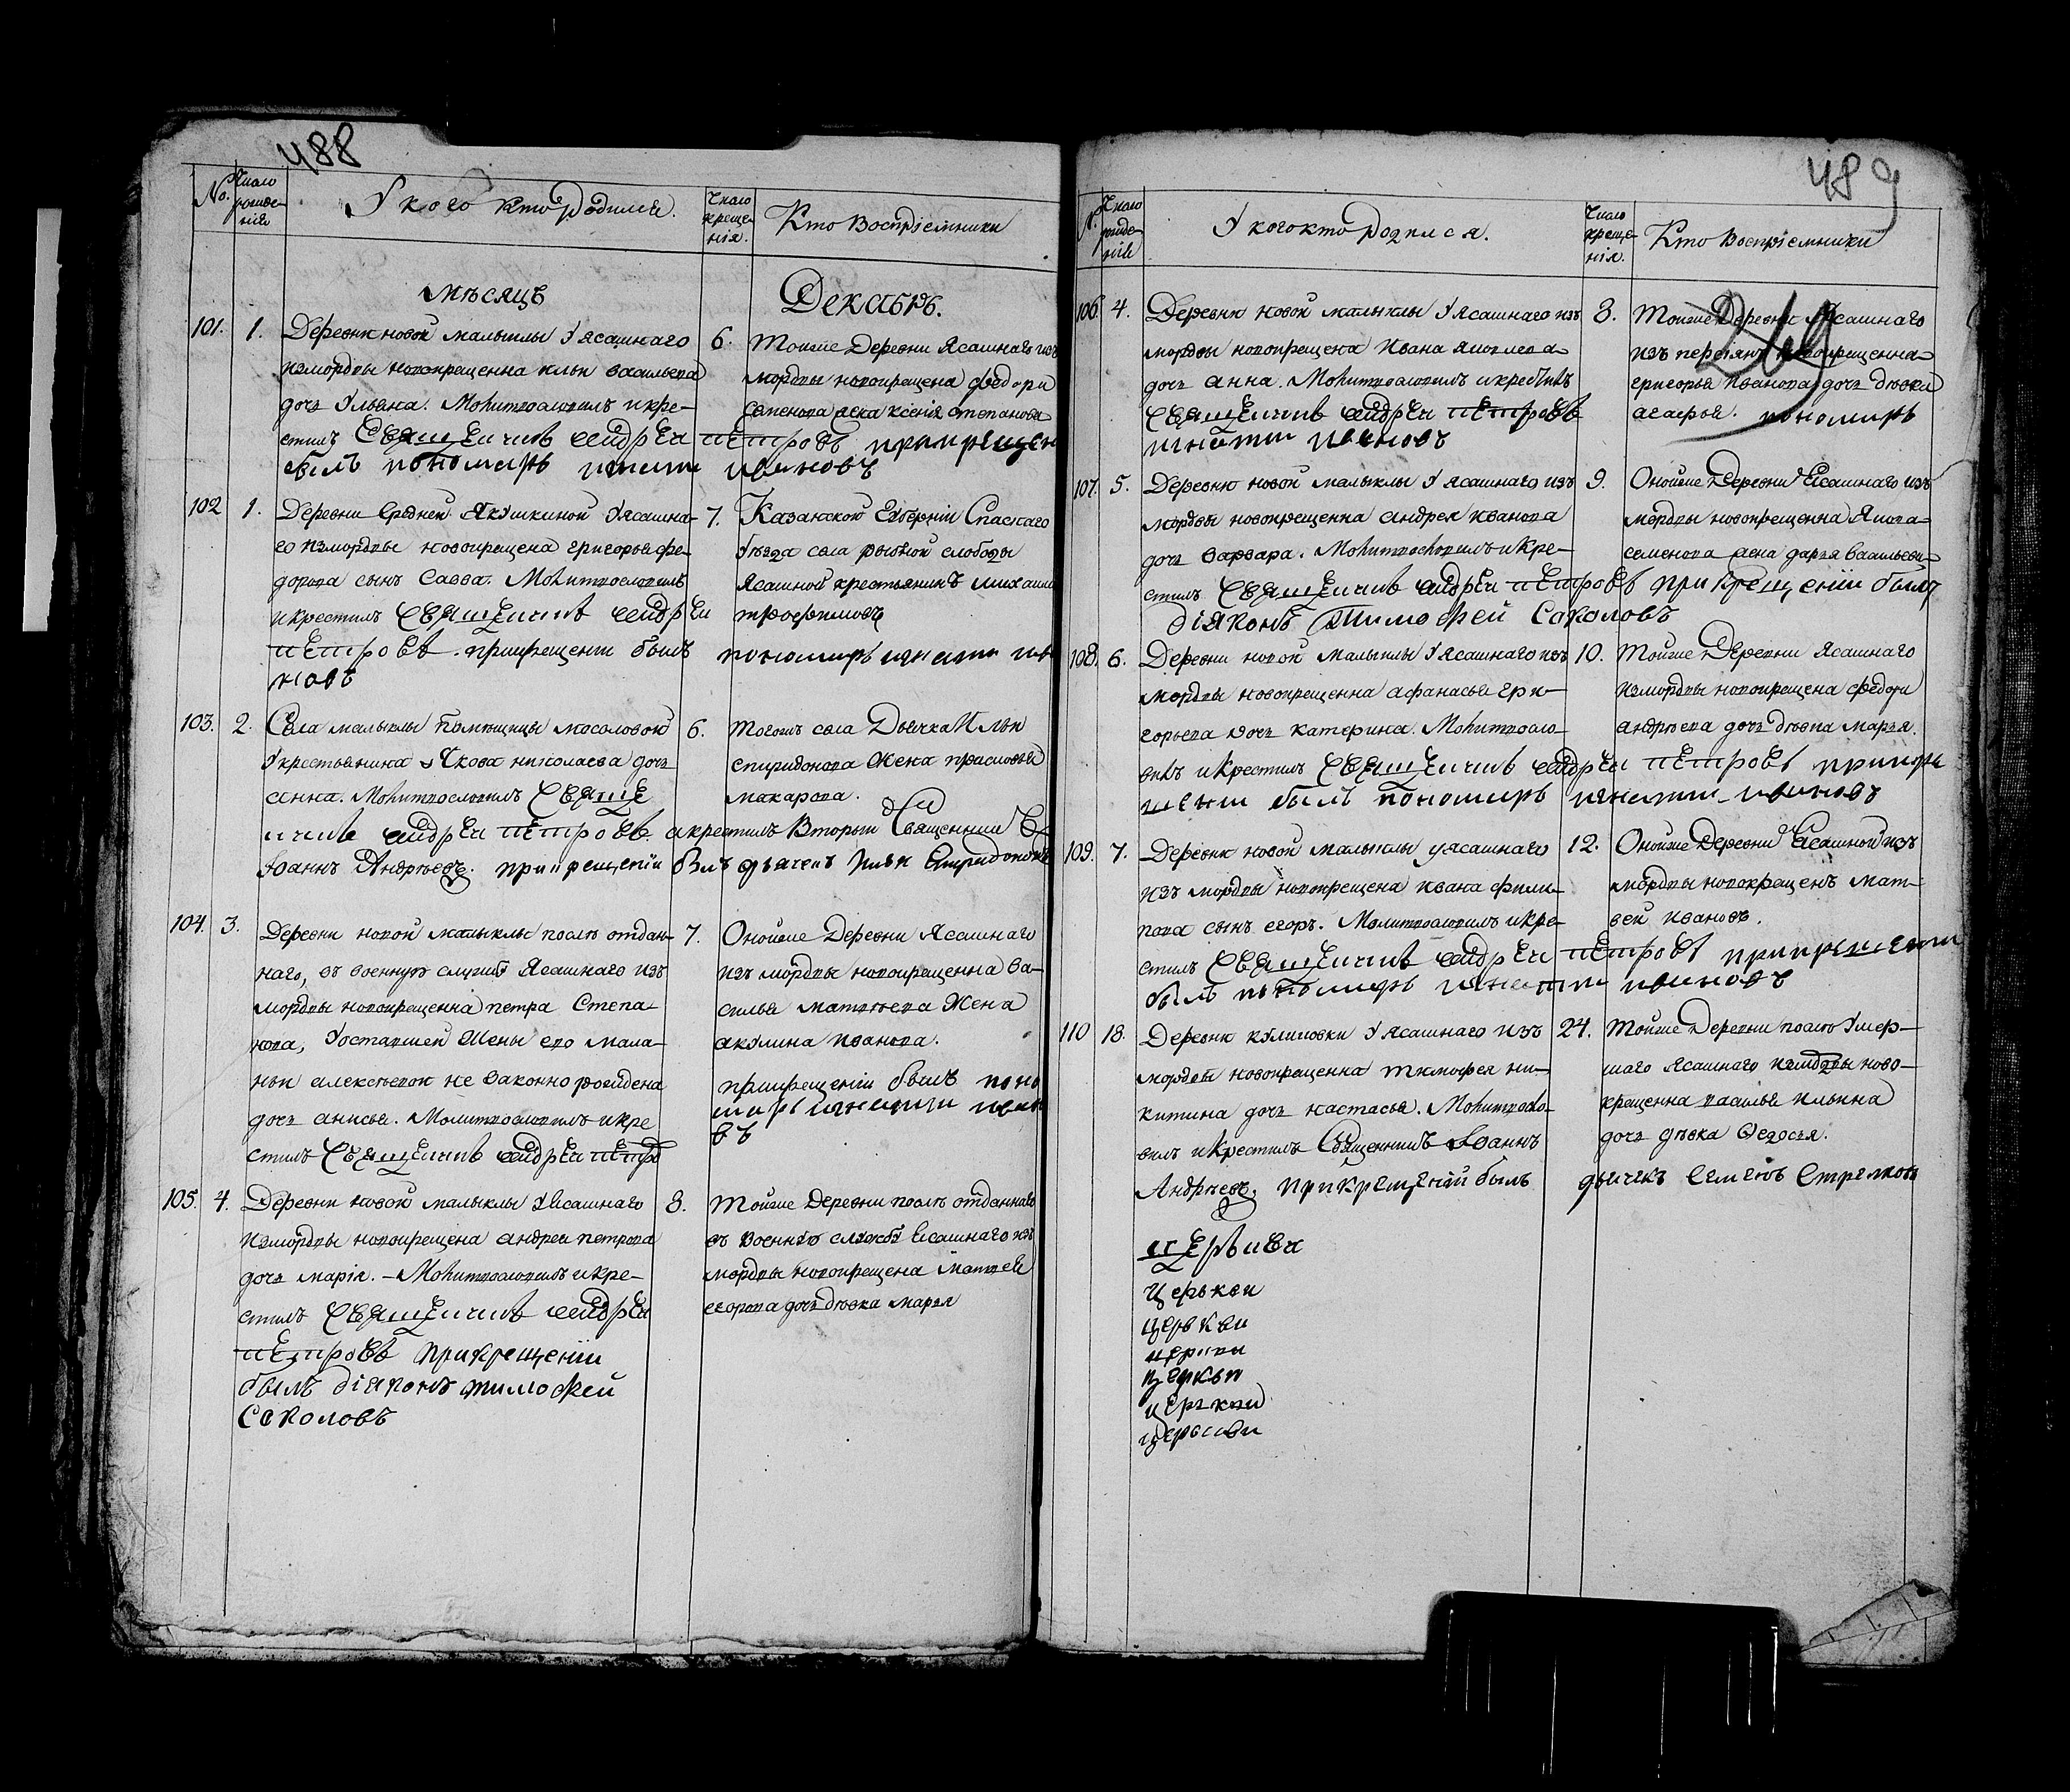 488
No. Число рожде-
нія
У кого кто родился.
Число
креще-
нія.
Кто воспріемники
мѣсяцъ Декабрь.
101. 1. Деревни новой малыклы У ясашнаго
измордвы новокрещенна ильи васильева
дочь Ульяна. Молитвословилъ икре-
стилъ Священникъ андрей петровъ прикрещен
былъ пономарь игнати ивановъ
6. Тойже Деревни Ясашнаго изъ
мордвы новокрещена федора
семенова жена ксенія степанова
102 1. Деревни Средней Якушкиной Уясашна-
го измордвы новокрещена григорья фе-
дорова сынъ Савва. Молитвословилъ
икрестилъ Священникъ андрей
петровъ. прикрещени былъ пономарь игнати ива
новъ
7. Казанской Губерніи Спаскаго
Уѣзда села рыбной слободы
Ясашной крестьянинъ михаила
трофимовъ
103. 2. Села малыклы Помѣщицы мосоловой
Укрестьянина Якова николаева дочь
анна. Молитвословилъ Священ
никъ андрей петровъ. акрестилъ Вторый Священникъ
Іоаннъ Андреевъ. прикрещеніи былъ дьячекъ Илья Спиридоновъ
6. Тогожъ села Дьячка Ильи
спиридонова жена прасковья
макарова.
104. 3. Деревни новой малыклы послѣ отдан-
наго, въ военную службу Ясашнаго изъ
мордвы новокрещенна петра Степа-
нова, Уоставшей Жены его мала-
ньи алексѣевой не законно рождена
дочь анисья. Молитвословилъ икре
стилъ Священникъ андрей петро
7. Онойже Деревни Ясашнаго
изъ мордвы новокрещенна ва-
силья матвѣева Жена
акулина иванова.
прикрещеніи былъ поно
марь игнатии ивано
въ
105. 4. Деревни новой малыклы Уясашнаго
измордвы новокрещена андрея петрова
дочь марія. – Молитвословилъ икре-
стилъ Священникъ андрей
петровъ прикрещеніи
былъ діяконъ тимофей
Соколовъ
8. Тойже Деревни послѣ отданнаго
въ военную службу Ясашнаго изъ
мордвы новокрещена матвея
егорова дочь дѣвка марья
489
№. Число
рожде-
нія
У кого кто родился.
Число
креще-
нія.
Кто воспріемники
106. 4. Деревни новой малыклы У ясашнаго изъ
мордвы новокрещена ивана яковлева
дочь анна. Молитвословилъ икрестилъ
Священникъ андрей петровъ
игнати ивановъ
8. Тойже Деревни Ясашнаго
изъ персіянъ новокрещенна
григорья иванова дочь дѣвка
агафья. пономарь
107. 5. Деревни новой малыклы У ясашнаго изъ
мордвы новокрещенна андрея иванова
дочь варвара. Молитвословилъ икре-
стилъ Священникъ андрей петровъ прикрещеніи былъ
діяконъ Тимофей Соколовъ
9. Онойже Деревни Ясашнаго изъ
мордвы новокрещенна Якова
семенова жена дарья васильева
108. 6. Деревни новой малыклы Уясашнаго изъ
мордвы новокрещенна афанасья гри-
горьева дочь катерина. Молитвосло-
вилъ икрестилъ Священникъ андрей петровъ прикре
щении былъ пономарь игнатии ивановъ
10. Тойже Деревни Ясашнаго
измордвы новокрещена федора
андреева дочь дѣвка марья.
109. 7. Деревни новой малыклы уясашнаго
изъ мордвы новокрещена ивана фили-
пова сынъ егоръ. Молитвословилъ икре-
стилъ Священникъ андрей петровъ прикрещени
былъ пономарь игнатии ивановъ
12. Онойже Деревни Ясашной изъ
мордвы новокрещенъ мат-
вей ивановъ.
110 18. Деревни куликовки У ясашнаго изъ
мордвы новокрещенна тимофея ни-
китина дочь настасья. Молитвосло-
вилъ икрестилъ Священникъ Іоаннъ
Андреевъ, прикрещеніи былъ дьячекъ Семенъ Стрелковъ
24. Тойже Деревни послѣ Умер-
шаго Ясашнаго измордвы ново-
крещенна василья ильина
дочь дѣвка Федосья.
церькви
церькви
церькви
церкви
церкви
церькви
церькви